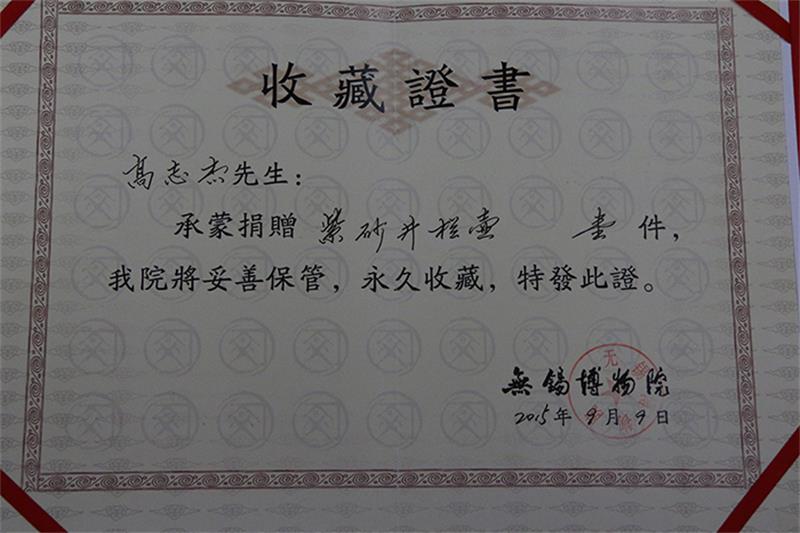 收藏證書
高志杰先生：
承蒙捐贈 紫砂井栏壶 壹 件，
我院將妥善保管，永久收藏，特發此證。
無錫博物院
2015年 9月 9日